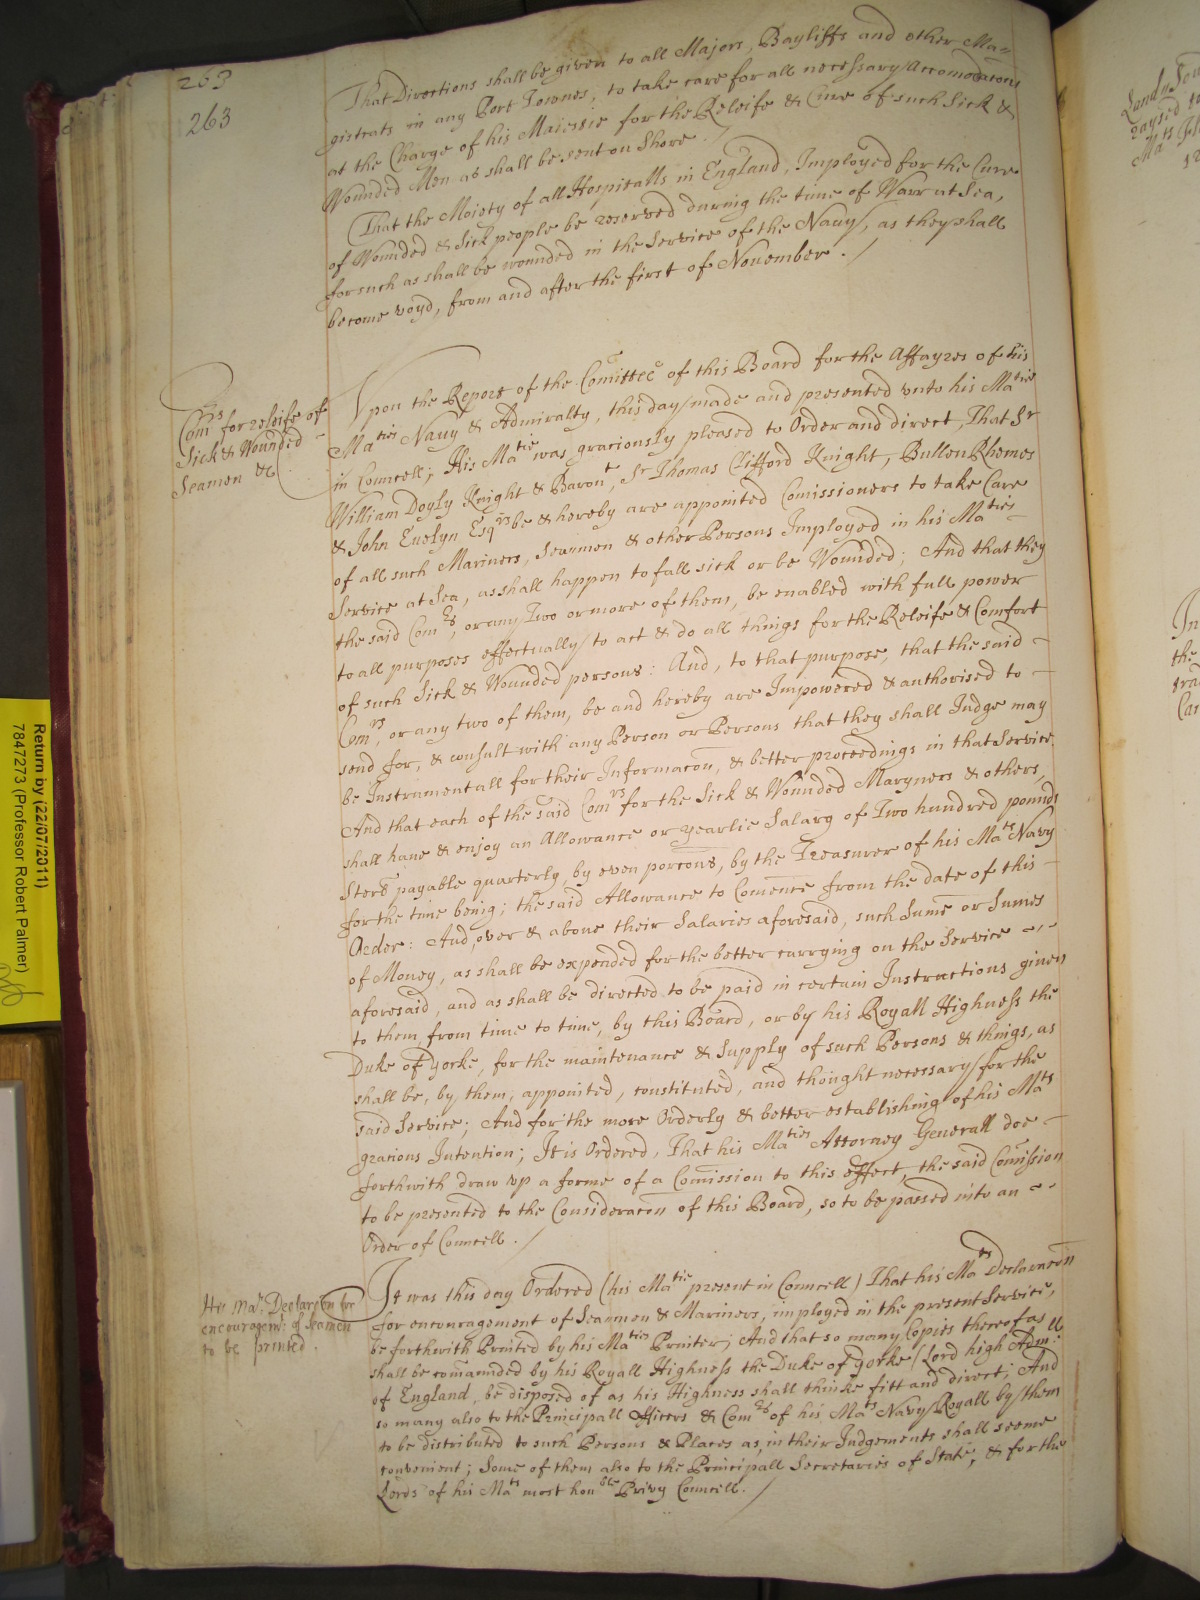 263
263
That Directions shall be given to all Majors, Bayliffs and other Ma=
gistrats in any Port Townes, to take care for all necessary Accomodacons
at the Charge of his Maiestie for the Releife & Cure of such Sick &
Wounded Men as shall be sent on Shore ./
That the Moiety of all Hospitalls in England, Imployed for the Cure
of Wounded & Sick people be reserved during the time of Warr at Sea,
for such as shall be wounded in the Service of the Navy, as they shall
become voyd, from and after the first of Nouember ./
Comrs for releife of
Sick & Wounded
Seamen &c
Vpon the Report of the Comittee of this Board for the Affayres of his
Maties Navy & Admiralty, this day made and presented vnto his Matie
in Councell; His Matie was graciously pleased to Order and direct, That Sr
William Doyly Knight & Baront, Sr Thomas Clifford Knight, Bullen Rhemes
& John Euelyn Esqrs be & hereby are appointed Comissioners to take Care
of all such Mariners, Seamen & other Persons Imployed in his Maties
Service at Sea, as shall happen to fall sick or be Wounded; And that they
the said Comrs, or any Two or more of them, be enabled with full power
to all purposes effectually to act & do all things for the Releife & Comfort
of such Sick & Wounded persons: And, to that purpose, that the said
Comrs, or any two of them, be and hereby are Impowered & authorised to
send for, & consult with any Person or Persons that they shall Judge may
be Instrumentall for their Informacon, & better proceedings in that Service
And that each of the said Comrs for the Sick & Wounded Maryners & others,
shall haue & enjoy an Allowance or yearlie Salary of Two hundred pounds
Sterl payable quarterly, by even porcons, by the Treasurer of his Mats Navy
for the time being; the said Allowance to Comence from the date of this
Order: And, over & aboue their Salaries aforesaid, such Sume or Sumes
of Money, as shall be expended for the better carrying on the Service
aforesaid, and as shall be directed to be paid in certain Instructions given
to them from time to time, by this Board, or by his Royall Highness the
Duke of Yorke, for the maintenance & Supply of such Persons & things, as
shall be, by, them, appointed, constituted, and thought necessary for the
said Service; And for the more Orderly & better establishing of his Mats
gracious Intention; It is Ordered, That his Maties Attorney Generall doe
forthwith draw vp a forme of a Comission to this effect, the said Comission
to be presented to the Consideracon of this Board, so to be passed into an
Order of Councell ./
His Mats Declaracon for
encouragemt of Seamen
to be printed.
It was this day Ordered (his Matie present in Councell) That his Mats Declaracon
for encouragement of Seamen & Mariners, imployed in the present Service,
be forthwith Printed by his Maties Printer; And that so many Copies thereof as
shall be comanded by his Royall Highness the Duke of Yorke (Lord high Adm:ll
of England, be disposed of as his Highness shall thinke fitt and direct; And
so many also to the Principall Officers & Comrs of his Mats Navy Royall by them
to be distributed to such Persons & Places as, in their Judgements shall seeme
convenient; Some of them also to the Principall Secretaries of State, & for the
Lords of his Mats most honble Privy Councell ./
Return by (22/07/2011)
7847273 (Professor Robert Palmer)